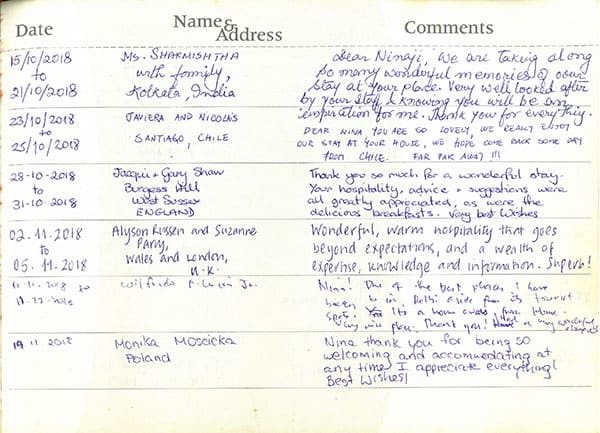 Date Name & Address Comments
15/10/2018 to 21/10/2018
Ms. SHARMISHTHA
with family,
Kolkata, India
Dear Ninaji, We are taking along
so many wonderful memories of our
stay at your place. Very well looked after
by your staff & knowing you will be an
inspiration for me. Thank you for everything.
23/10/2018
to
25/10/2018
JAVIERA AND NICOLÁS
SANTIAGO, CHILE
DEAR NINA YOU ARE SO LOVELY, WE REALLY ENJOY
OUR STAY AT YOUR HOUSE, WE HOPE COME BACK SOME DAY
FROM CHILE. FAR FAR AWAY !!!
28-10-2018
to
31-10-2018
Jacqui + Gary Shaw
Burgess Hill
West Sussex
ENGLAND
Thank you so much for a wonderful stay.
Your hospitality, advice + suggestions were
all greatly appreciated, as were the
delicious breakfasts. Very best wishes
02.11.2018
to
05.11.2018
Alyson Russen and Suzanne
Parry,
Wales and London,
U.K.
Wonderful, warm hospitality that goes
beyond expectations, and a wealth of
expertise, knowledge and information. Superb!
Wilfredo Jr.
Nina! One of the best places I have
been to in Delhi aside from its tourist
spots. Yes Its a home away from Home.
Thank you! Have a
19 11 2018
Monika Moscicka
Poland
Nina thank you for being so
welcoming and accommodating at
any time I appreciate everything!
Best Wishes!